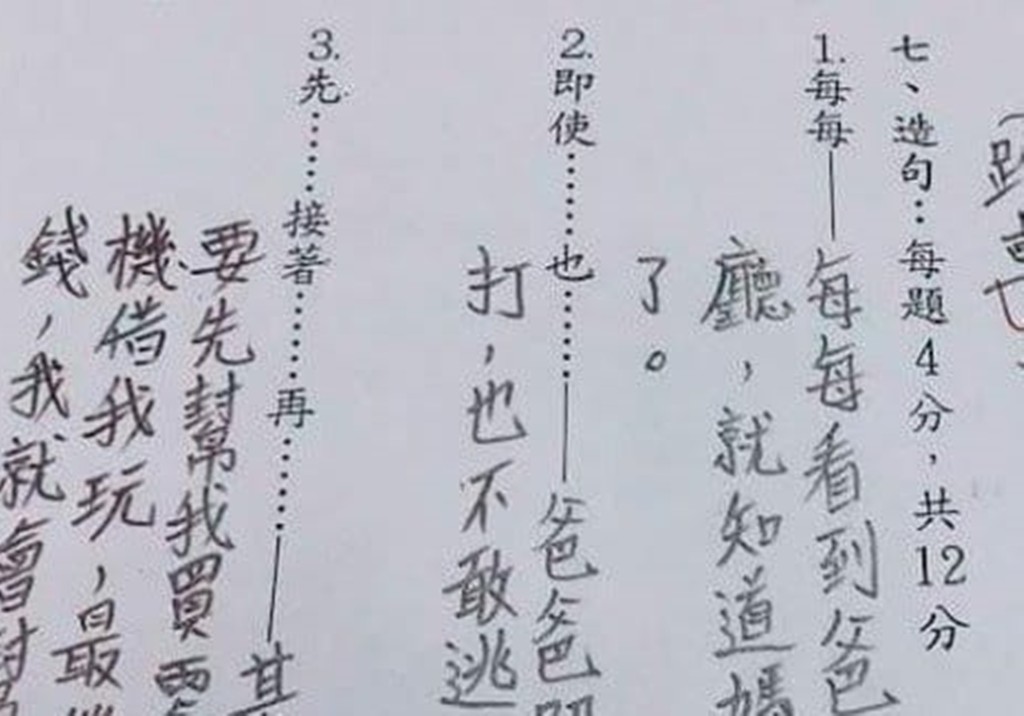 七、造句：每題4分，共12分
1.每每——每每看到爸
廳，就知道媽
了。
2.即使……也……——爸爸
打，也不敢逃
3.先……接著……再……——
要先幫我買
機借我玩，最
錢，我就會